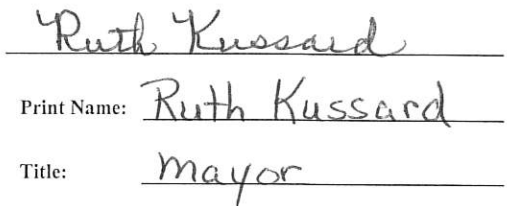 Ruth Kussard
Print Name: Ruth Kussard
Title: Mayor